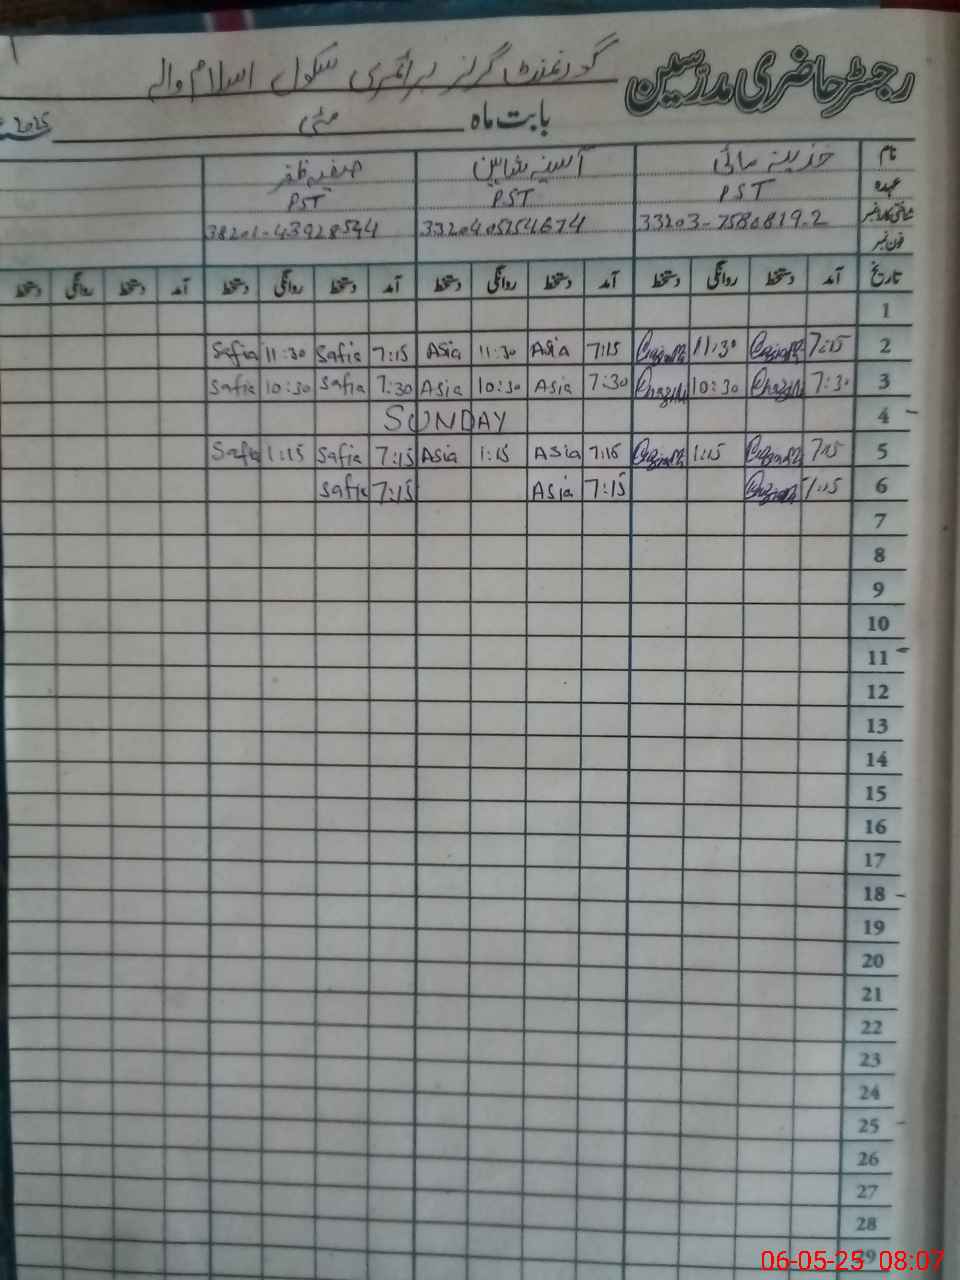 رجسٹر حاضری مدرسین گورنمنٹ گرلز پرائمری سکول اسلام والے
بابت ماہ مئی 2025
نام خزینہ مائی آسیہ شاہین صفیہ ظفر
عہدہ PST PST PST
شناختی کارڈ نمبر 33203-7580819-2
فون نمبر
تاریخ آمد دستخط روانگی دستخط آمد دستخط روانگی دستخط آمد دستخط روانگی دستخط آمد دستخط روانگی دستخط
1
2 7:15 11:30 7:15 Asia 11:30 Asia 7:15 Safia 11:30 Safia
3 7:30 10:30 7:30 Asia 10:30 Asia 7:30 Safia 10:30 Safia
4 SUNDAY
5 7:15 1:15 7:15 Asia 1:15 Asia 7:15 Safia 1:15 Safia
6 7:15 7:15 Asia 7:15 Safia
7
8
9
10
11
12
13
14
15
16
17
18
19
20
21
22
23
24
25
26
27
28
06-05-25 08:07